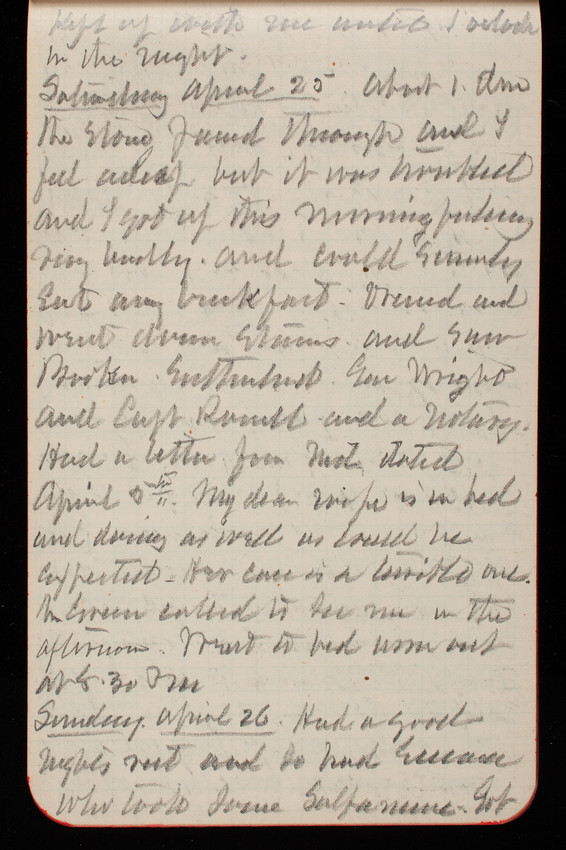 kept up with me until 1 oclock
in the night.
Saturday April 25. About 1. the
the stone passed through and I
fell asleep but it was troubled
and I got up this morning feeling
very badly. and could scarcely
Eat any breakfast. Dressed and
went down stairs. and saw
Sutherland. Gen Wright
and Capt and a Notary.
Had a letter from dated
April My dear wife is in bed
and doing as well as could be
expected - Her case is a terrible one.
Green called to see me in the
afternoon. Went to bed worn out
at 8.30 Pm
Sunday. April 26. Had a good
nights rest and so had
who took some Sulfa Got